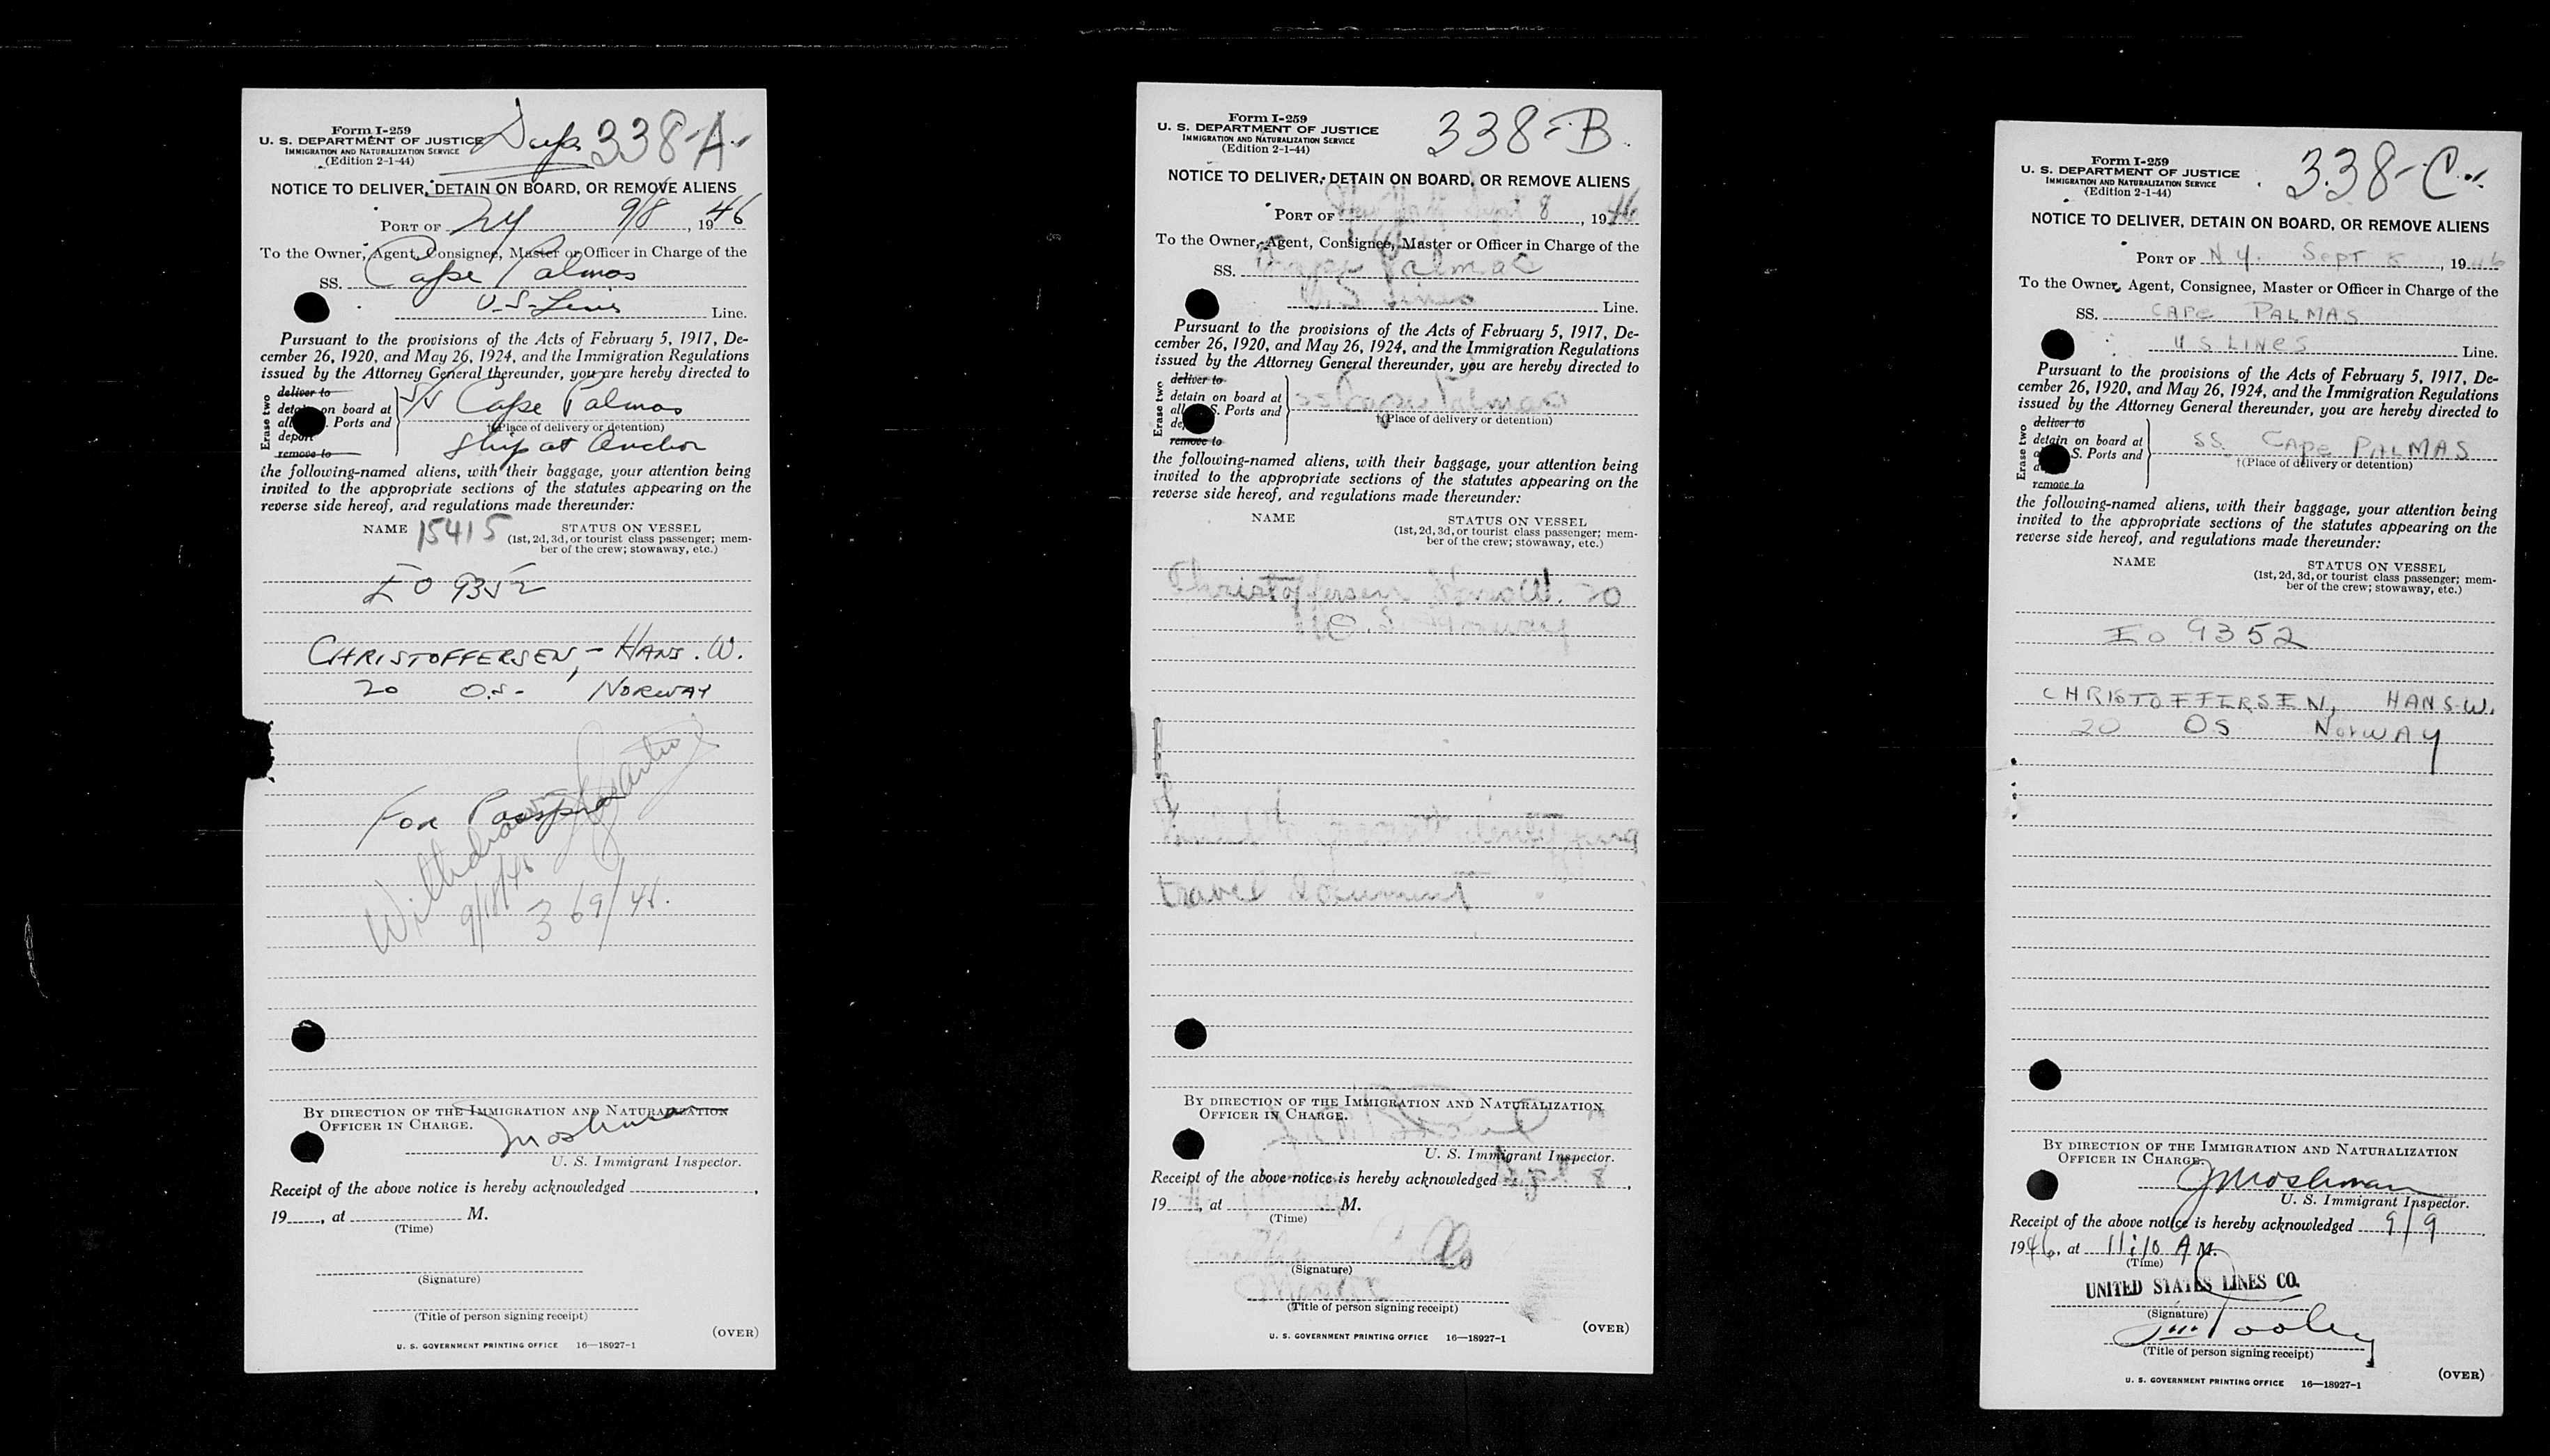 Form I-259
U. S. DEPARTMENT OF JUSTICE
IMMIGRATION AND NATURALIZATION SERVICE
(Edition 2-1-44)
338-A
NOTICE TO DELIVER, DETAIN ON BOARD, OR REMOVE ALIENS
PORT OF NY 9/8, 1946
To the Owner, Agent, Consignee, Master or Officer in Charge of the
SS. Cape Palmos
U-S-Lines Line.
Pursuant to the provisions of the Acts of February 5, 1917, De-
cember 26, 1920, and May 26, 1924, and the Immigration Regulations
issued by the Attorney General thereunder, you are hereby directed to
Erase two
deliver to
detain on board at
all . Ports and
deport
remove to
S/S Cape Palmos
†(Place of delivery or detention)
Ship at Anchor
the following-named aliens, with their baggage, your attention being
invited to the appropriate sections of the statutes appearing on the
reverse side hereof, and regulations made thereunder:
NAME 15415 STATUS ON VESSEL
(1st, 2d, 3d, or tourist class passenger; mem-
ber of the crew; stowaway, etc.)
EO 9352
CHRISTOFFERSEN, - HANS. W.
20 O.S- NORWAY
For Passport
Withdrawn
9/18/46
369/46.
BY DIRECTION OF THE IMMIGRATION AND NATURALIZATION
OFFICER IN CHARGE.
Moshman
U. S. Immigrant Inspector.
Receipt of the above notice is hereby acknowledged ,
19 , at M.
(Time)
(Signature)
(Title of person signing receipt)
(OVER)
U. S. GOVERNMENT PRINTING OFFICE 16—18927-1
Form I-259
U. S. DEPARTMENT OF JUSTICE
IMMIGRATION AND NATURALIZATION SERVICE
(Edition 2-1-44)
338-B
NOTICE TO DELIVER, DETAIN ON BOARD, OR REMOVE ALIENS
PORT OF New York Sept 8, 1946
To the Owner, Agent, Consignee, Master or Officer in Charge of the
SS. Cape Palmas
U S Lines Line.
Pursuant to the provisions of the Acts of February 5, 1917, De-
cember 26, 1920, and May 26, 1924, and the Immigration Regulations
issued by the Attorney General thereunder, you are hereby directed to
Erase two
deliver to
detain on board at
all S. Ports and
de
remove to
SS Cape Palmas
†(Place of delivery or detention)
the following-named aliens, with their baggage, your attention being
invited to the appropriate sections of the statutes appearing on the
reverse side hereof, and regulations made thereunder:
NAME STATUS ON VESSEL
(1st, 2d, 3d, or tourist class passenger; mem-
ber of the crew; stowaway, etc.)
Christoffersen Hans W. 20
O.S. Norway
travel document
BY DIRECTION OF THE IMMIGRATION AND NATURALIZATION
OFFICER IN CHARGE.
U. S. Immigrant Inspector.
Receipt of the above notice is hereby acknowledged Sept 8,
19 , at M.
(Time)
(Signature)
Master
(Title of person signing receipt)
(OVER)
U. S. GOVERNMENT PRINTING OFFICE 16—18927-1
Form I-259
U. S. DEPARTMENT OF JUSTICE
IMMIGRATION AND NATURALIZATION SERVICE
(Edition 2-1-44)
338-C
NOTICE TO DELIVER, DETAIN ON BOARD, OR REMOVE ALIENS
PORT OF N Y. Sept 8, 1946
To the Owner, Agent, Consignee, Master or Officer in Charge of the
SS. CAPE PALMAS
U S LINES Line.
Pursuant to the provisions of the Acts of February 5, 1917, De-
cember 26, 1920, and May 26, 1924, and the Immigration Regulations
issued by the Attorney General thereunder, you are hereby directed to
Erase two
deliver to
detain on board at
a S. Ports and
d
remove to
SS CAPE PALMAS
†(Place of delivery or detention)
the following-named aliens, with their baggage, your attention being
invited to the appropriate sections of the statutes appearing on the
reverse side hereof, and regulations made thereunder:
NAME STATUS ON VESSEL
(1st, 2d, 3d, or tourist class passenger; mem-
ber of the crew; stowaway, etc.)
EO 9352
CHRISTOFFERSEN, HANS W.
20 OS NORWAY
BY DIRECTION OF THE IMMIGRATION AND NATURALIZATION
OFFICER IN CHARGE.
J Moshman
U. S. Immigrant Inspector.
Receipt of the above notice is hereby acknowledged 9/9,
1946, at 11:10 A M.
(Time)
UNITED STATES LINES CO.
(Signature)
Tooley
(Title of person signing receipt)
(OVER)
U. S. GOVERNMENT PRINTING OFFICE 16—18927-1